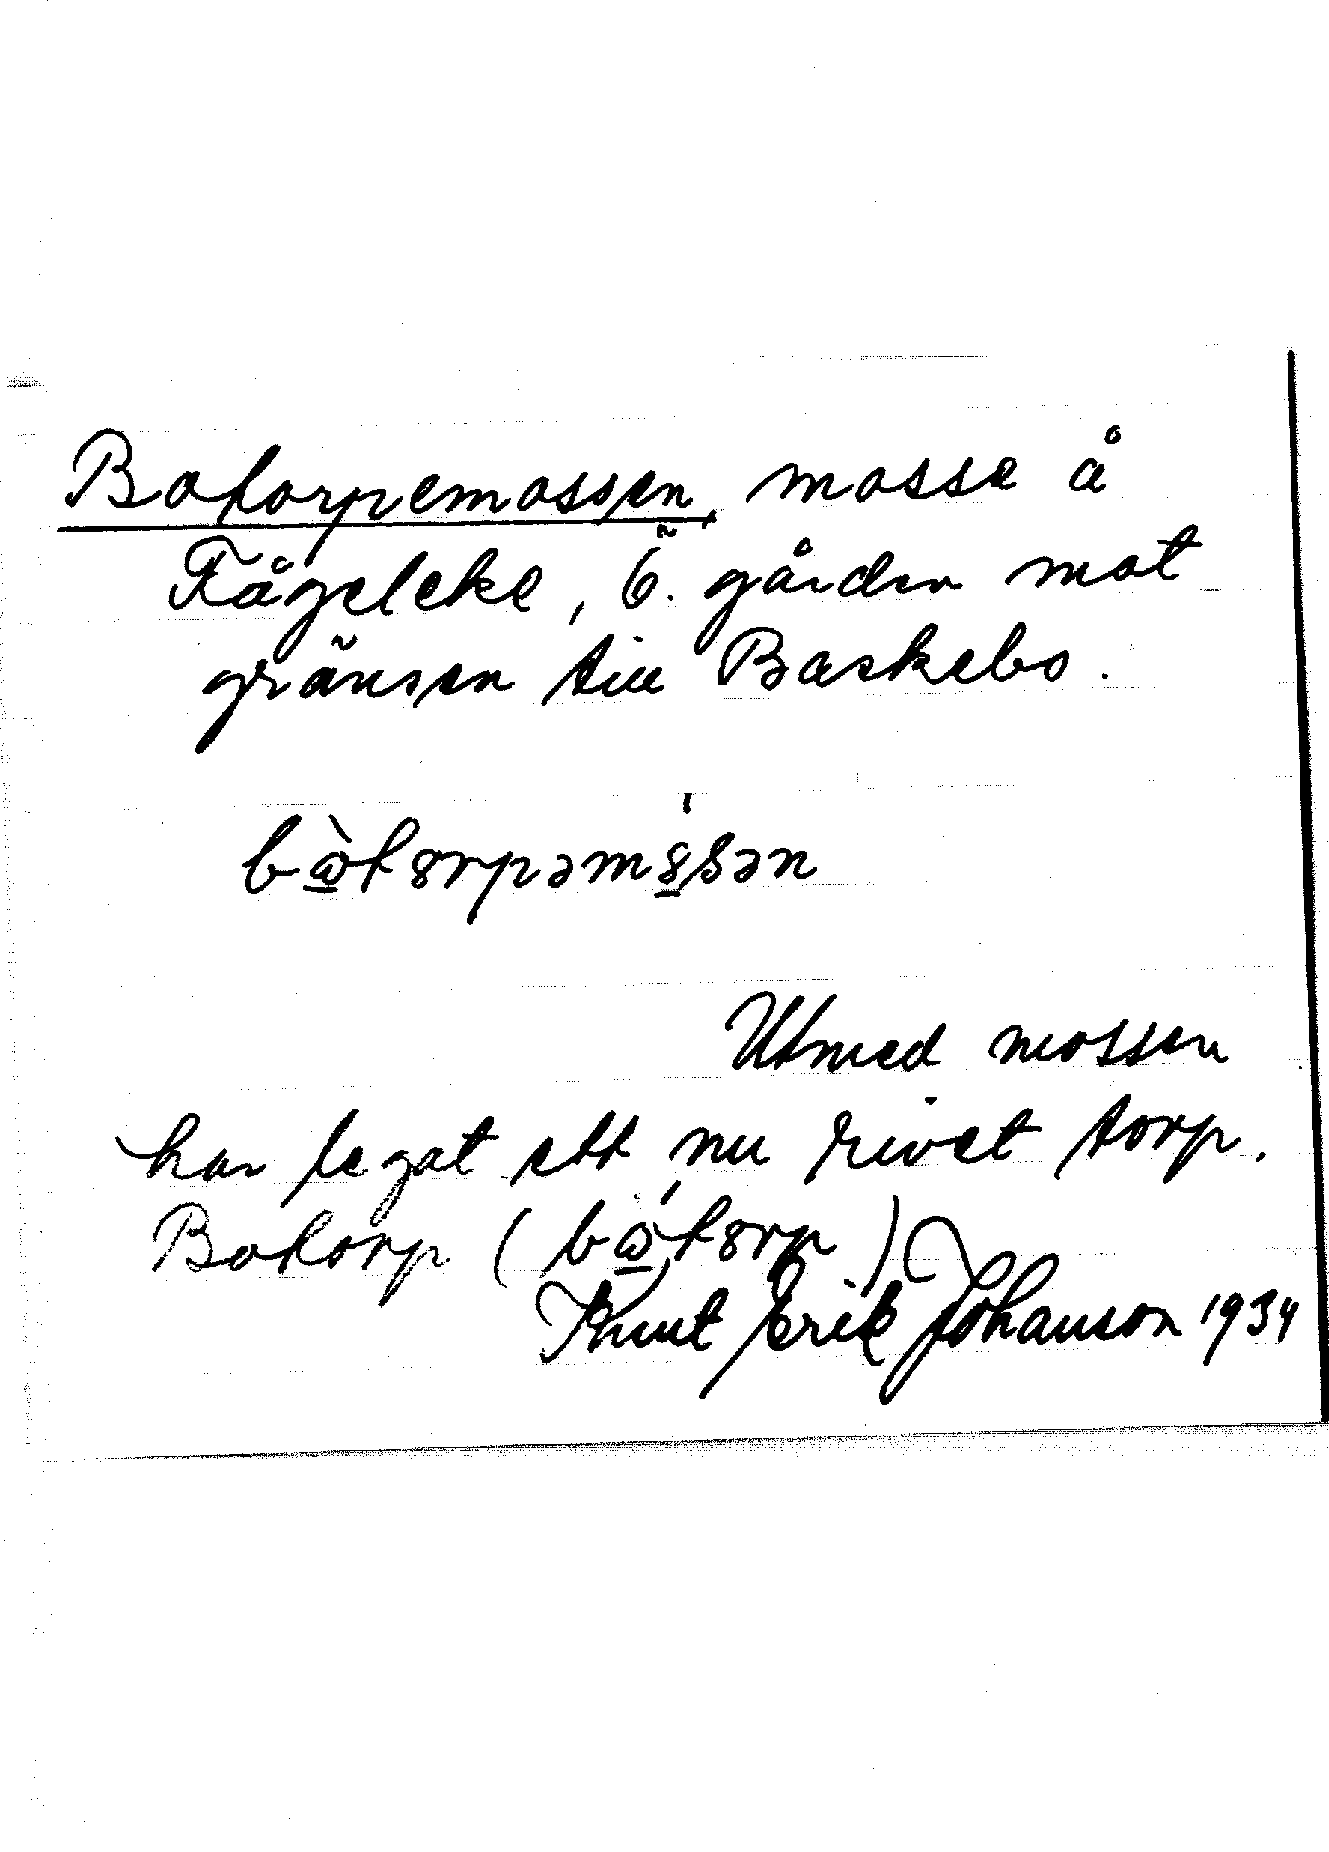 Botorpemossen, mosse å
Fågeleke, ö. gården mot
gränsen till Baskebo.
bὼtorpəmósən
Utmed mossen
har legat ett nu rivet torp.
Botorp (
Knut Erik Johanson 1934